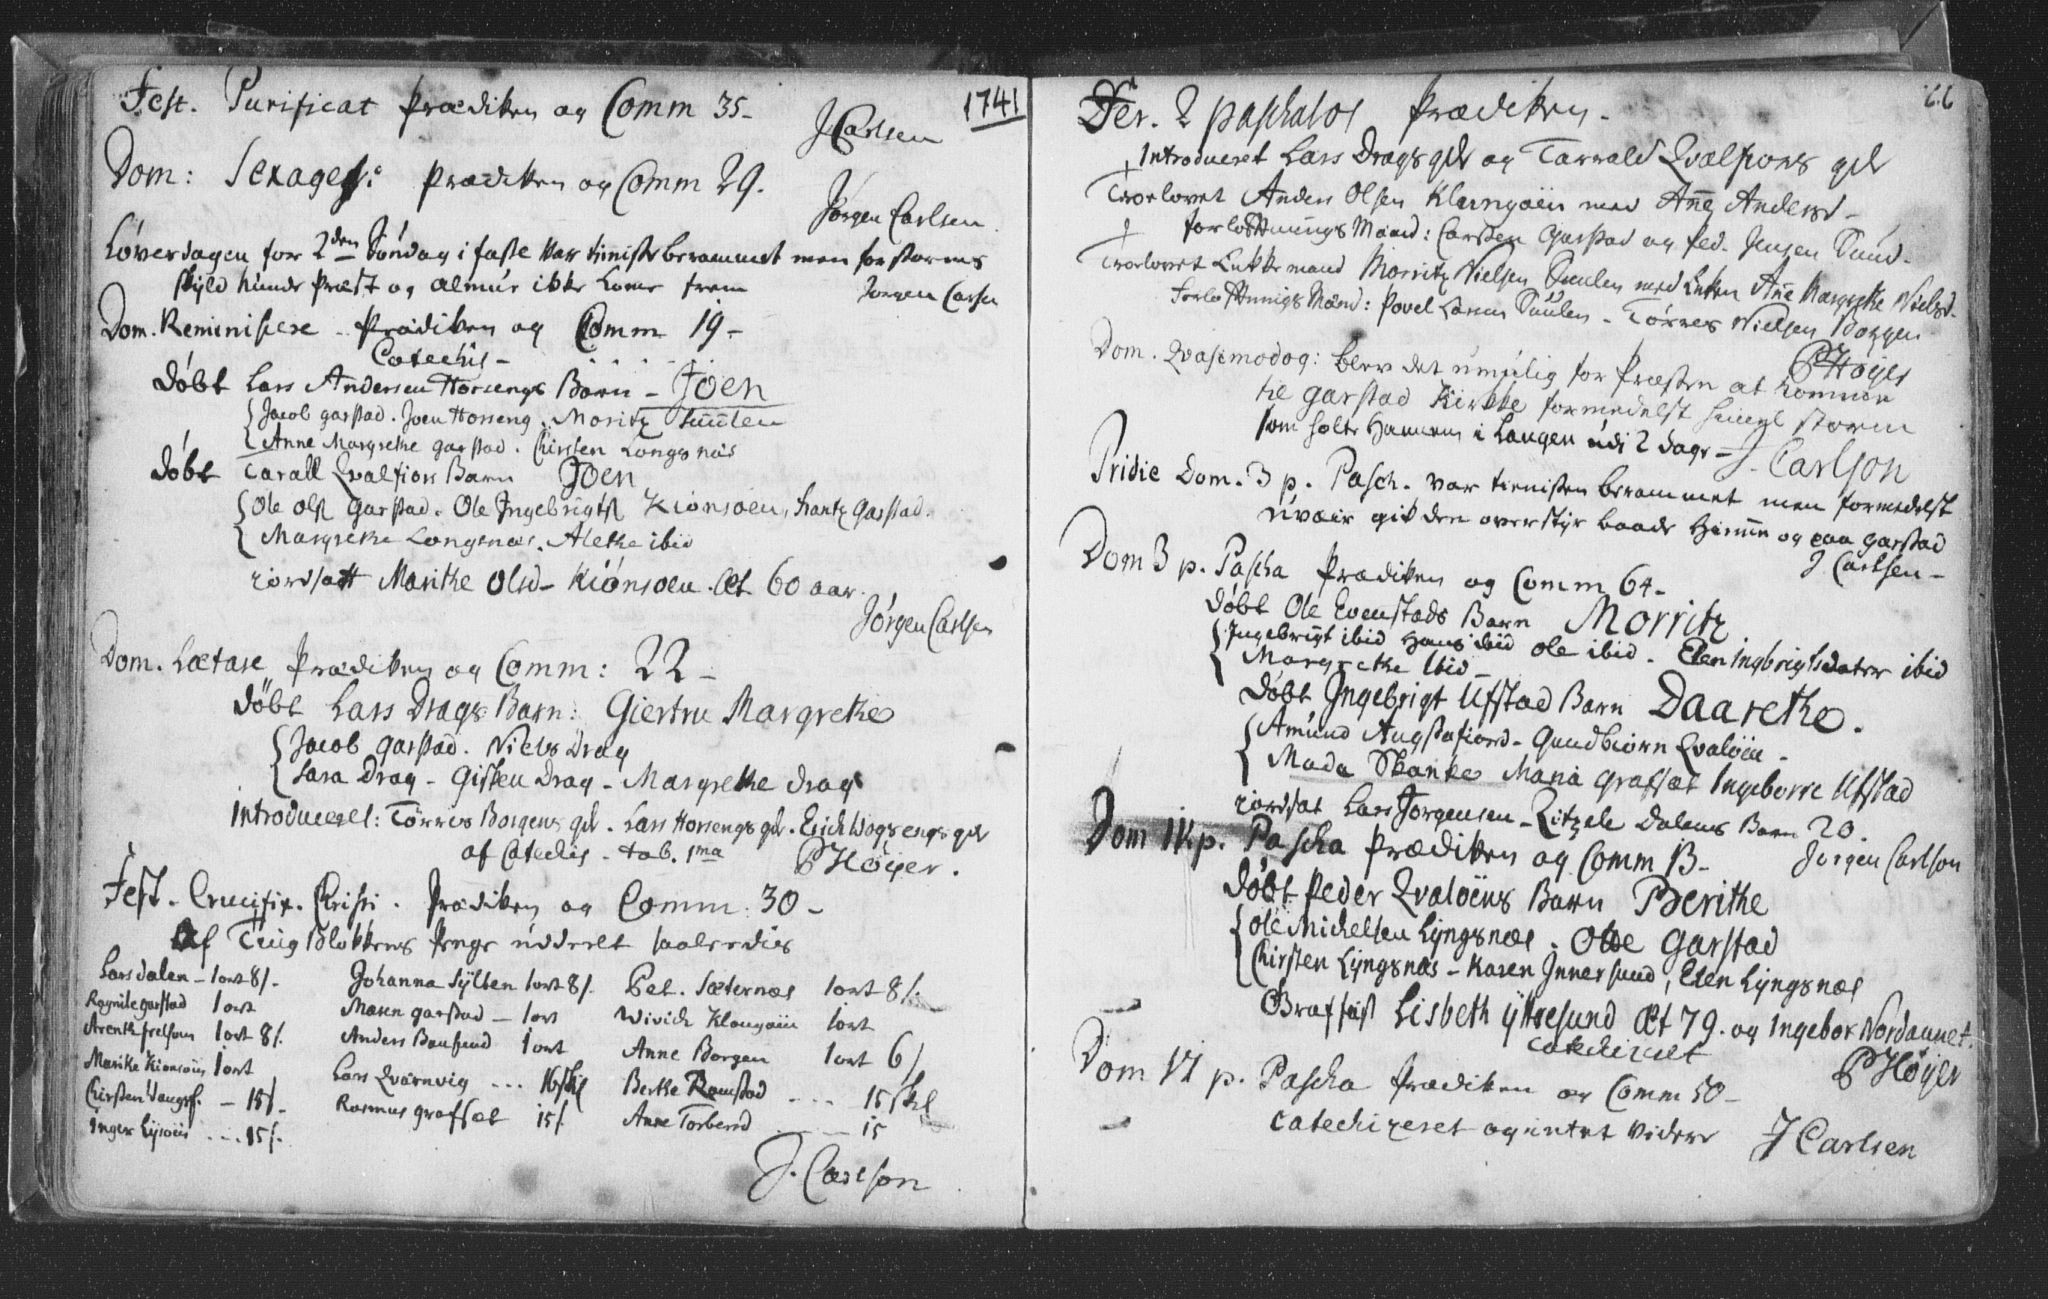 1741
Fest. Purificat Prædiken og Comm 35-
J Carlsen
Dom: Sexages: Prædiken og Comm 29.
Jørgen Carlsen
Løverdagen for 2den Søndag i faste var tienister berammet men for storms
skyld kunde Præst og almue ikke komme frem
Jørgen Carlsen
Dom. Reminiscere - Prædiken og Comm 19-
Catechis-
Døbt Lars Andersen Horsengs Barn - Joen
Jacob garstad. Joen Horseng. Moritz Suulen
Anne Margrethe garstad. Chirsten Longsnæs
Døbt Tarall Qvalfiors Barn Joen
Ole Ols Garstad. Ole Ingebrigts Kiønsøen, frantz Garstad.
Margrethe Longsnæs. Alethe ibid
iordsatt Marithe Olsd- Kiønsøen. Æt 60 aar.
Jørgen Carlsen
Dom. Lætare Prædiken og Comm: 22-
Døbt Lars Drags Barn: Giertru Margrethe
Jacob garstad. Niels Drag
Sara Drag - Gisken Drag - Margrethe drags
Introduceret: Tørres Borgens qv. Lars Horsengs qv. Erich Wogsengs qv
af Catechis - tab. 1ma
P Høyer.
Fest. Crucifix. Christi. Prædiken og Comm. 30-
Af Tiug Blokkens Penge uddeelt saaledis
Lars dalen - 1 ort 8/. Johanna Sylten 1 ort 8/. Pet. Sæternæs 1 ort 8/.
Ragnile garstad 1 ort Maren garstad - 1 ort Wivich Klongøiin 1 ort
1 ort 8/. Anders 1 ort Anne Borgen 1 ort 6/
Marithe Kiønsøiin 1 ort Lars Qværnvig ... 16 skl Berthe Ramstad .... 15 skl
Chirsten - 15/- Rasmus grafsæt 15/. Anne Torbersd - 15
Inger Lysøiis ... 15/.
J. Carlson
66
Fer. 2 paschatos Prædiken-
Introduceret Lars Drags qv og Tarrald Qvalfiors qv
Troelovet Anders Olsen Klungøien med Anne Andersd-
forlottnings Mænd: Carsten Garstad og Ped. Jensen Sund-
Troelovet Enkkemand Morritz Nielsen Suulen med Enken Ane Margrethe Nielsd-
Forlottnings Mænd: Povel Larsen Suulen - Tørres Nielsen Borgen
P Høyer
Dom. Qvasimodog: blev det umulig for Præsten at komme
til garstad Kirkke formedelst storm
som holte Hannem i Laugen udi 2 dage -
J. Carlson
Pridie Dom. 3 p. Pasch. var tienisten berammet men formedelst
uvæir gik den overstyr baade Hiemme og paa garstad
J. Carlsen-
Dom 3 p. Pascha Prædiken og Comm 64-
Døbt Ole Evenstads Barn Morritz
Ingebrigt ibid Hans ibid ole ibid. Elen Ingbrigtsdater ibid
Margrethe Ibid-
Døbt Ingebrigt Ufstad Barn Daarethe.
Amund Augstafiord - Gundbiørn Qvaløen -
Mada Skanke Maria grafsæt Ingeborre Ufstad
iordsat Lars Jørgensen - Ritzele Dalens Barn 20.
Jørgen Carlson
Dom IV p. Pascha Prædiken og Comm 13-
Døbt Peder Qvaløens Barn Berithe
Ole Michelsen Lyngsnæs. Olle Garstad
Chirsten Lyngsnæs - Karen Innersund, Elen Lyngsnæs
Graffæst Lisbeth Yttresund Æt 79. og Ingebor Nordaunet.
Catechizet
P Høyer
Dom VI p. Pascha Prædiken og Comm 50-
Catechizeret og intet videre
J Carlsen